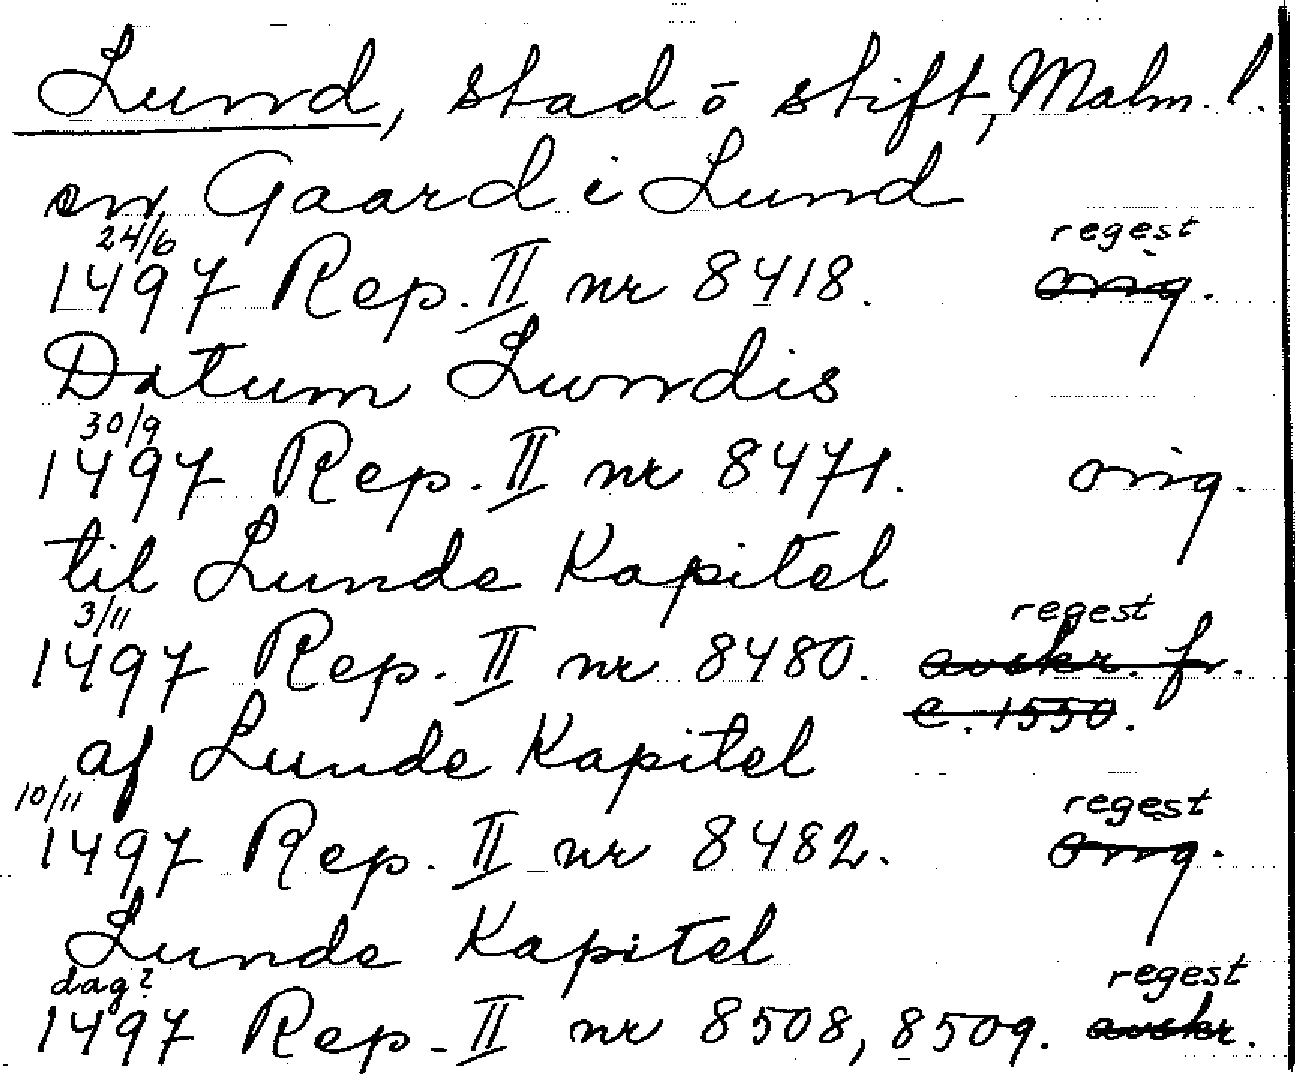 Lund, stad o stift, Malm. l.
en Gaard i Lund
24/6 regest
1497 Rep. II nr 8418. orig.
Datum Lundis
30/9
1497 Rep. II nr 8471. orig.
til Lunde Kapitel
3/11 regest
1497 Rep. II nr 8480. avskr. fr.
c. 1550.
af Lunde Kapitel
10/11 regest
1497 Rep. II nr 8482. orig.
Lunde Kapitel
dag? regest
1497 Rep. II nr 8508, 8509. avskr.